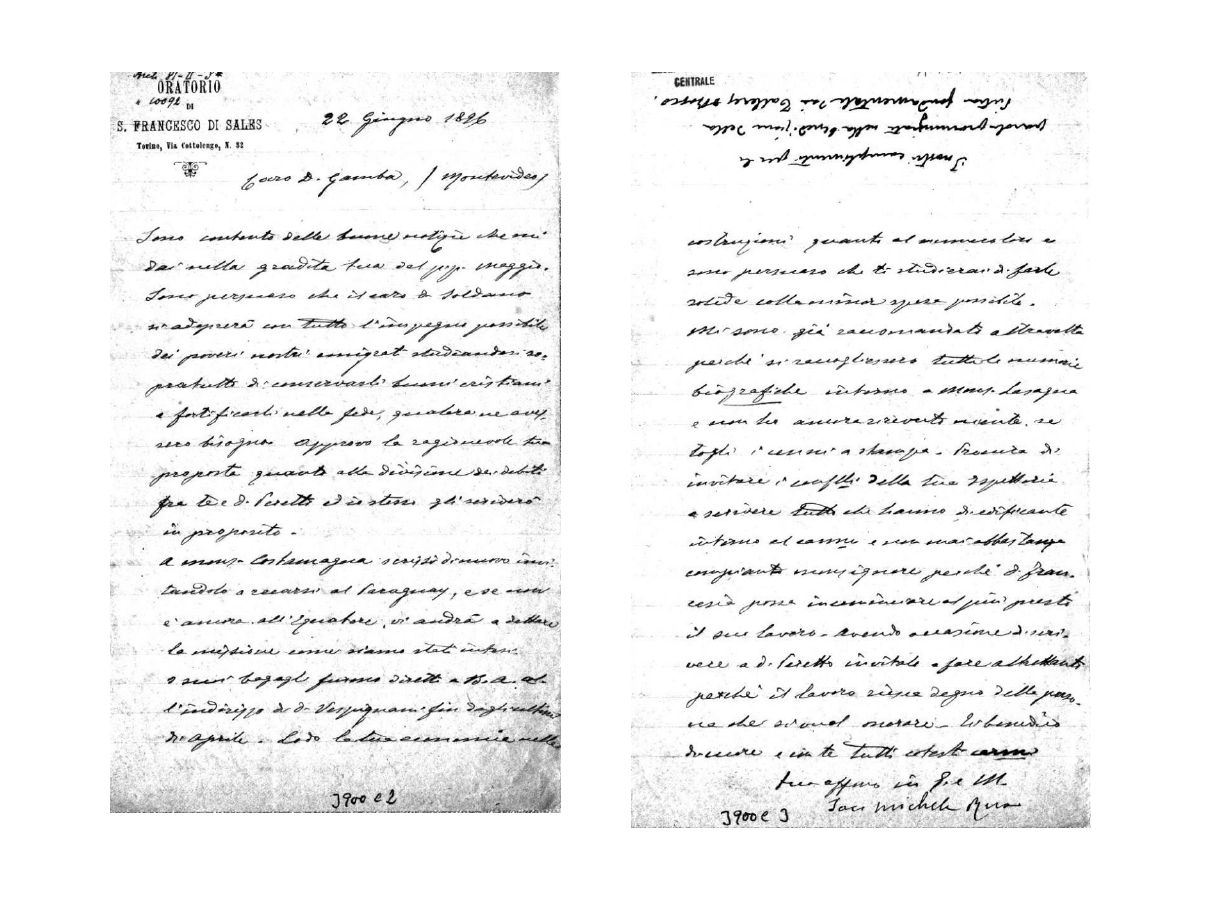 Arch.
ORATORIO
10092 DI
S. FRANCESCO DI SALES
Torino, Via Cottolengo, N. 32
22 Giugno 1896
Caro D. Gamba, / Montevideo /
Sono contento delle buone notizie che mi
dai nella gradita tua del pp. Maggio.
Sono persuaso che il caro D. Soldano
si adoprerà con tutto l'impegno possibile
dei poveri nostri emigrat studiandosi so-
pratutto di conservarli buoni cristiani
e fortificarli nella fede, qualora ne aves-
sero bisogno. Approvo la ragionevole tua
proposta quanto alla divisione dei debiti
fra te e D. Peretto ed io stesso gli scriverò
in proposito.
A mons. Costamagna scrissi di nuovo invi-
tandolo a recarsi al Paraguay, e se non
è ancora all'Equatore, vi andrà a dettare
la missione come siamo stati intesi.
I suoi bagagli furono diretti a B. A. al
l'indirizzo di D. Vespignani fin dagli ultimi
di Aprile. Lodo la tua economia nelle
3900 C 2
CENTRALE
I nostri complimenti per le
parole pronunziate nella benedizione della
pietra fondamentale dei Talleres D Bosco.
costruzioni quanto al numero loro e
sono persuaso che ti studierai di farle
solide colla minor spesa possibile.
Mi sono già raccomandato altravolta
perché si raccogliessero tutte le memorie
biografiche intorno a Mons. Lasagna
e non ho ancora ricevuto niente, se
togli i cenni a stampa. Procura di
invitare i conflli della tua Ispettoria
a scrivere tutto che hanno di edificante
intorno al carmo e non mai abbastanza
compianto monsignore perché D. Fran-
cesia possa incominciare al più presto
il suo lavoro. Avendo occasione di scri-
vere a D. Peretto invitalo a fare altrettanto
perché il lavoro riesca degno della perso-
na che si vuol onorare. Ti benedico
di cuore e con te tutti cotesti carmi
tuo affmo in G. e M.
Sac. Michele Rua
3900 C 3